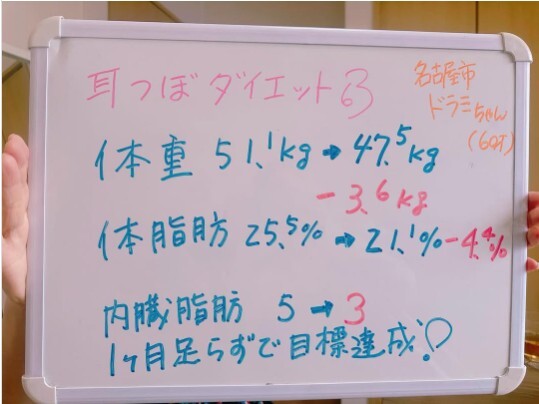 耳つぼダイエット
名古屋市
ドラミちゃん
(60才)
体重 51.1kg→47.5kg
-3.6kg
体脂肪 25.5%→21.1% -4.4%
内臓脂肪 5→3
1ヶ月足らずで目標達成!